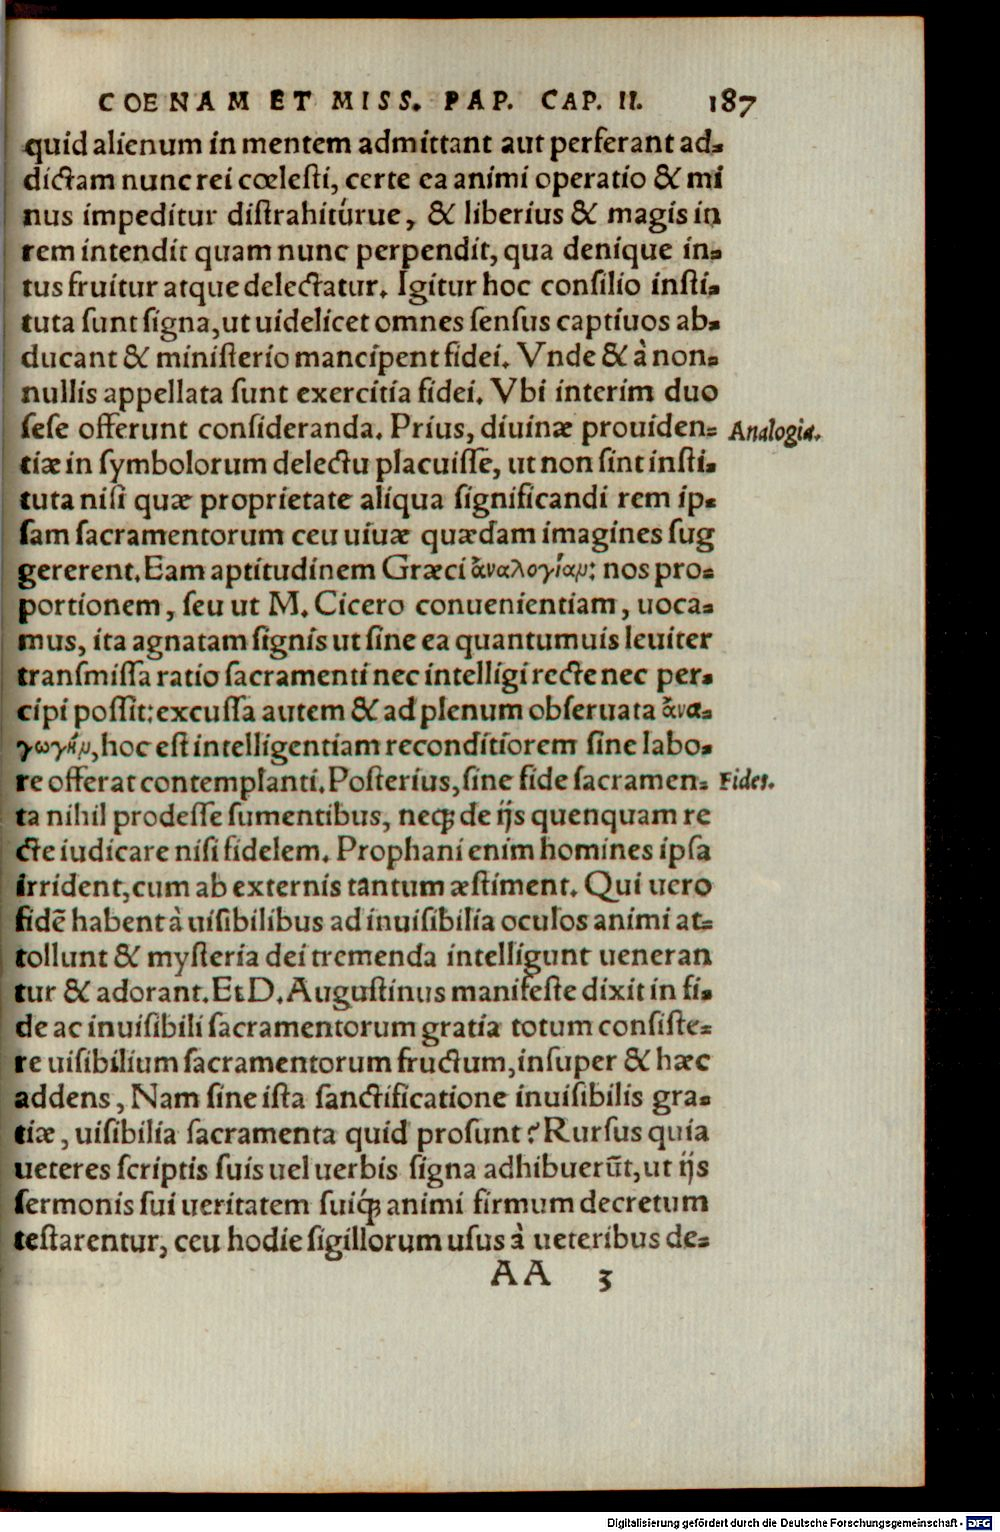 COENAM ET MISS. PAP. CAP. II. 187
quid alienum in mentem admittant aut perferant ad⸗
dictam nunc rei cœlesti, certe ea animi operatio & mi
nus impeditur distrahitúrue, & liberius & magis in
rem intendit quam nunc perpendit, qua denique in⸗
tus fruitur atque delectatur. Igitur hoc consilio insti⸗
tuta sunt signa, ut uidelicet omnes sensus captiuos ab⸗
ducant & ministerio mancipent fidei. Vnde & à non⸗
nullis appellata sunt exercitia fidei. Vbi interim duo
sese offerunt consideranda. Prius, diuinæ prouiden⸗ Analogia.
tiæ in symbolorum delectu placuisse, ut non sint insti⸗
tuta nisi quæ proprietate aliqua significandi rem ip⸗
sam sacramentorum ceu uiuæ quædam imagines sug
gererent. Eam aptitudinem Græci ἀναλογίαμ: nos pro⸗
portionem, seu ut M. Cicero conuenientiam, uoca⸗
mus, ita agnatam signis ut sine ea quantumuis leuiter
transmissa ratio sacramenti nec intelligi recte nec per⸗
cipi possit: excussa autem & ad plenum obseruata ἀνα⸗
γωγήμ, hoc est intelligentiam reconditiorem sine labo⸗
re offerat contemplanti. Posterius, sine fide sacramen⸗ Fides.
ta nihil prodesse sumentibus, neqꝫ de ijs quenquam re
cte iudicare nisi fidelem. Prophani enim homines ipsa
irrident, cum ab externis tantum æstiment. Qui uero
fidē habent à uisibilibus ad inuisibilia oculos animi at⸗
tollunt & mysteria dei tremenda intelligunt ueneran
tur & adorant. Et D. Augustinus manifeste dixit in fi⸗
de ac inuisibili sacramentorum gratia totum consiste⸗
re uisibilium sacramentorum fructum, insuper & hæc
addens, Nam sine ista sanctificatione inuisibilis gra⸗
tiæ, uisibilia sacramenta quid prosunt? Rursus quia
ueteres scriptis suis uel uerbis signa adhibuerūt, ut ijs
sermonis sui ueritatem suiqꝫ animi firmum decretum
testarentur, ceu hodie sigillorum usus à ueteribus de⸗
AA 3
Digitalisierung gefördert durch die Deutsche Forschungsgemeinschaft - DFG